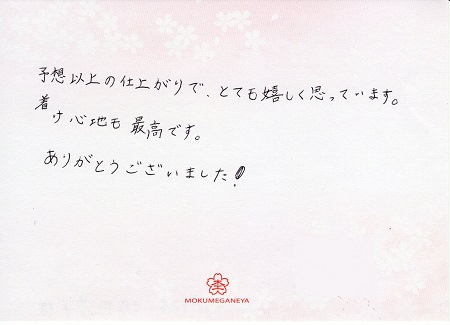 予想以上の仕上がりで、とても嬉しく思っています。
着け心地も最高です。
ありがとうございました!
MOKUMEGANEYA